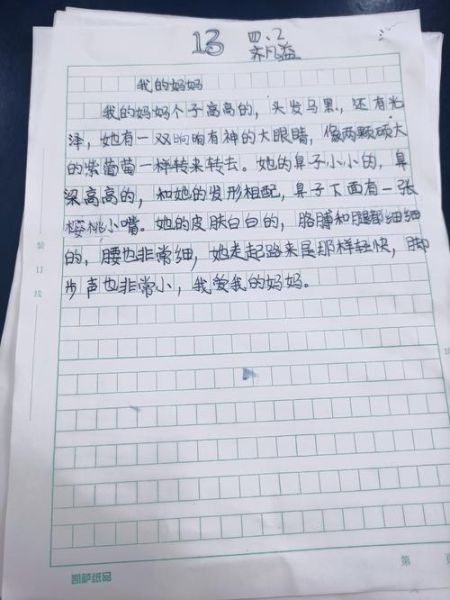 13
四.2
我的妈妈
我的妈妈个子高高的，头发乌黑，还有光
泽，她有一双炯炯有神的大眼睛，像两颗硕大
的紫葡萄一样转来转去。她的鼻子小小的，鼻
梁高高的，和她的发形相配，鼻子下面有一张
樱桃小嘴。她的皮肤白白的，胳膊和腿都细细
的，腰也非常细，她走起路来是那样轻快，脚
步声也非常小，我爱我的妈妈。
装订线
凯萨纸品
第 页